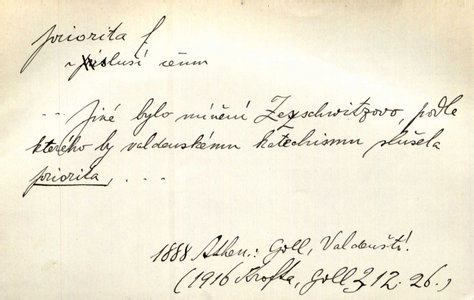 priorita f.
sluší čemu
... Jiné bylo mínění Zezschwitzovo, podle
kterého by valdenskému katechismu slušela
priorita, ...
1888 Athen.: Goll, Valdenští.
(1916 Krofta, Goll 12. 26.)